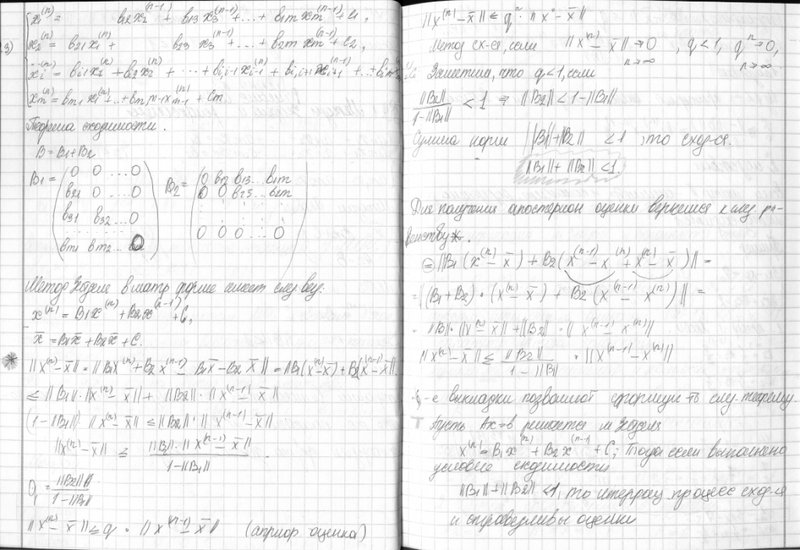 x₁⁽ⁿ⁾ = b₁₂x₂⁽ⁿ⁻¹⁾ + b₁₃x₃⁽ⁿ⁻¹⁾ + ... + b₁ₘxₘ⁽ⁿ⁻¹⁾ + c₁,
x₂⁽ⁿ⁾ = b₂₁x₁⁽ⁿ⁾ + b₂₃x₃⁽ⁿ⁻¹⁾ + ... + b₂ₘxₘ⁽ⁿ⁻¹⁾ + c₂,
xᵢ⁽ⁿ⁾ = bᵢ₁x₁⁽ⁿ⁾ + bᵢ₂x₂⁽ⁿ⁾ + ... + bᵢ,ᵢ₋₁xᵢ₋₁⁽ⁿ⁾ + bᵢ,ᵢ₊₁xᵢ₊₁⁽ⁿ⁻¹⁾ + ... + bᵢₘxₘ
xₘ⁽ⁿ⁾ = bₘ₁x₁⁽ⁿ⁾ + ... + bₘ,ₘ₋₁xₘ₋₁⁽ⁿ⁾ + cₘ
Теорема сходимости.
B = B₁ + B₂
B₁ = ( 0 0 ... 0 B₂ = ( 0 b₁₂ b₁₃ ... b₁ₘ
b₂₁ 0 ... 0 0 0 b₂₃ ... b₂ₘ
b₃₁ b₃₂ ... 0 . . . . .
bₘ₁ bₘ₂ ... 0 ) 0 0 0 ... 0 )
Метод Зейделя в матр форме имеет след вид:
x⁽ⁿ⁾ = B₁x⁽ⁿ⁾ + B₂x⁽ⁿ⁻¹⁾ + C,
x̄ = B₁x̄ + B₂x̄ + C.
* ||x⁽ⁿ⁾ − x̄|| = ||B₁x⁽ⁿ⁾ + B₂x⁽ⁿ⁻¹⁾ − B₁x̄ − B₂x̄|| = ||B₁(x⁽ⁿ⁾ − x̄) + B₂(x⁽ⁿ⁻¹⁾ − x̄)||
≤ ||B₁||·||x⁽ⁿ⁾ − x̄|| + ||B₂||·||x⁽ⁿ⁻¹⁾ − x̄||
(1 − ||B₁||) ||x⁽ⁿ⁾ − x̄|| ≤ ||B₂||·||x⁽ⁿ⁻¹⁾ − x̄||
||x⁽ⁿ⁾ − x̄|| ≤ ||B₂||·||x⁽ⁿ⁻¹⁾ − x̄|| / 1 − ||B₁||
q = ||B₂|| / 1 − ||B₁||
||x⁽ⁿ⁾ − x̄|| ≤ q · ||x⁽ⁿ⁻¹⁾ − x̄|| (априор оценка)
||x⁽ⁿ⁾ − x̄|| ≤ qⁿ · ||x⁰ − x̄||
Метод сх-ся, если ||x⁽ⁿ⁾ − x̄|| → 0, q < 1, qⁿ → 0,
n→∞ n→∞
Заметим, что q < 1, если
||B₂|| / 1 − ||B₁|| < 1 ⇒ ||B₂|| < 1 − ||B₁||
Сумма норм ||B₁|| + ||B₂|| < 1, то сход-ся.
||B₁|| + ||B₂|| < 1.
Для получения апостериор оценки вернемся к след ра-
венству *.
= ||B₁(x⁽ⁿ⁾ − x̄) + B₂(x⁽ⁿ⁻¹⁾ − x⁽ⁿ⁾ + x⁽ⁿ⁾ − x̄)|| =
= ||(B₁ + B₂)·(x⁽ⁿ⁾ − x̄) + B₂(x⁽ⁿ⁻¹⁾ − x⁽ⁿ⁾)|| =
||B||·||x⁽ⁿ⁾ − x̄|| + ||B₂||·||x⁽ⁿ⁻¹⁾ x⁽ⁿ⁾||
||x⁽ⁿ⁾ − x̄|| ≤ ||B₂|| / 1 − ||B|| · ||x⁽ⁿ⁻¹⁾ − x⁽ⁿ⁾||
выкладки позволяют сформули-ть след. теорему.
Т Пусть Ax=b решается м Зейделя
x⁽ⁿ⁾ = B₁x⁽ⁿ⁾ + B₂x⁽ⁿ⁻¹⁾ + C; Тогда если выполнено
условие сходимости
||B₁|| + ||B₂|| < 1, то итерац. процесс сход-ся
и справедливы оценки